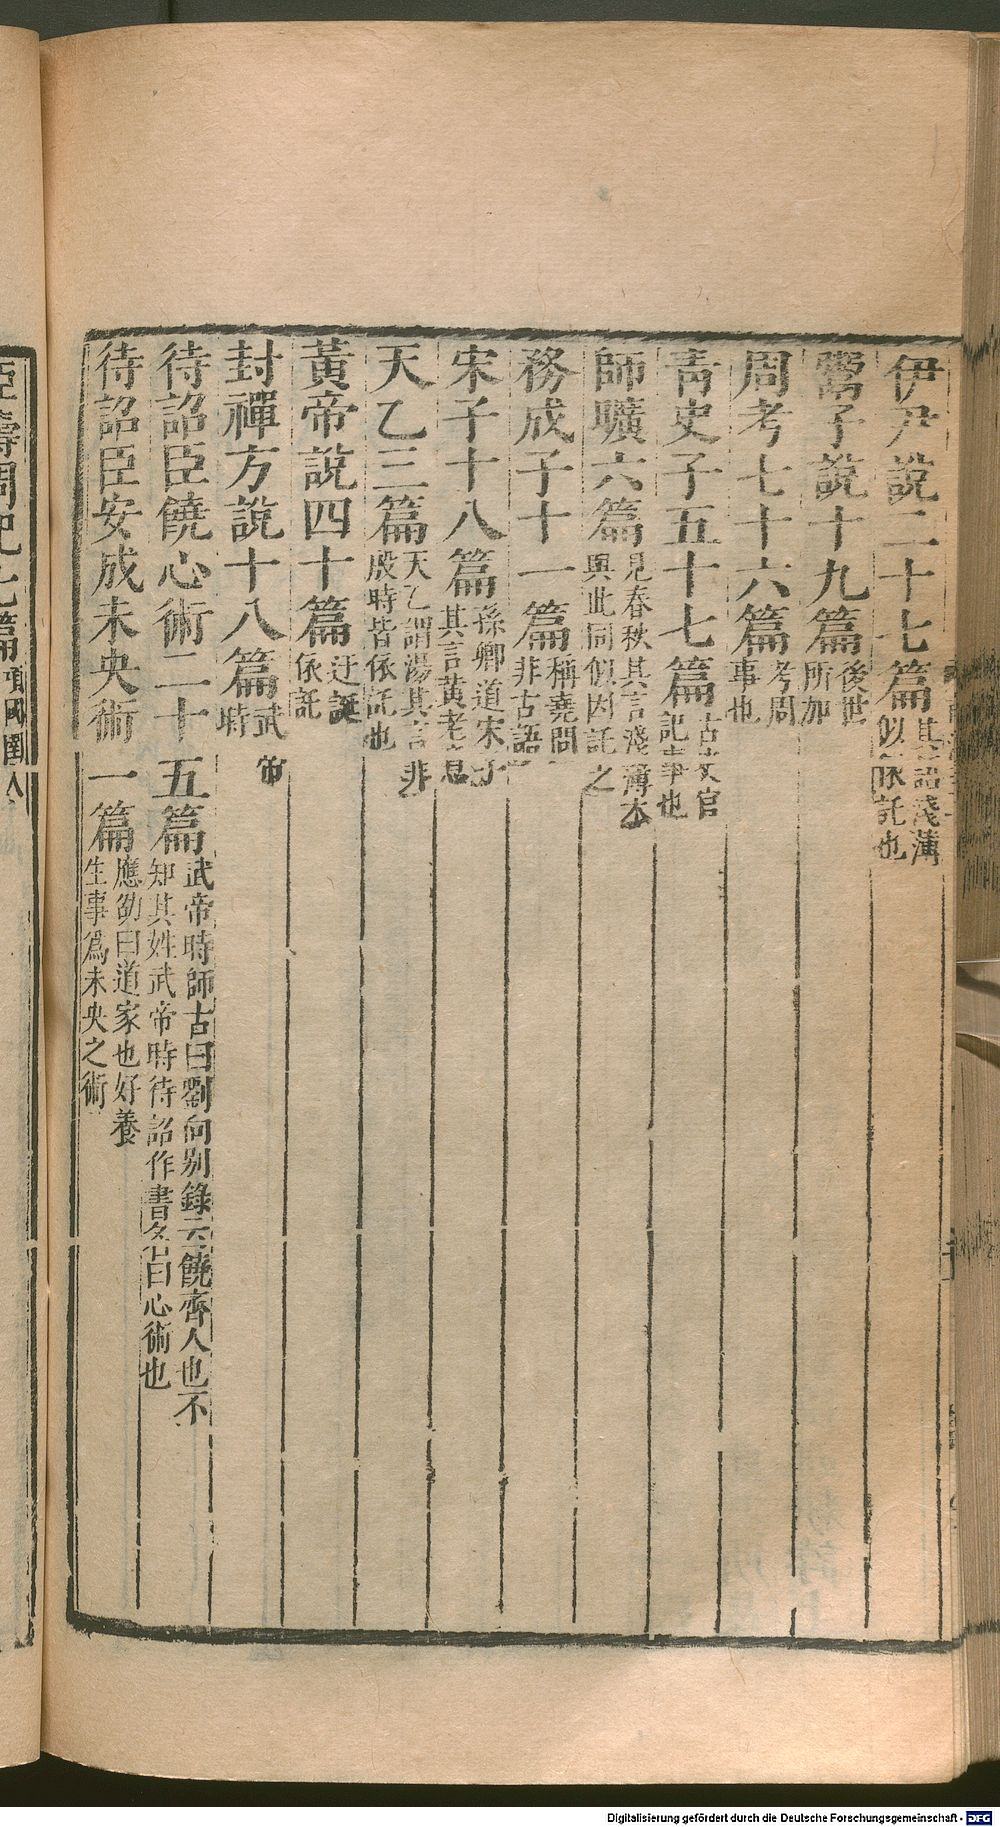 伊尹說二十七篇其語淺薄似依託也
鬻子說十九篇後世所加
周考七十六篇考周事也
青史子五十七篇古史官記事也
師曠六篇見春秋其言淺薄本與此同似因託之
務成子十一篇稱堯問非古語
宋子十八篇孫卿道宋子其言黃老意
天乙三篇天乙謂湯其言非殷時皆依託也
黃帝說四十篇迂誕依託
封禪方說十八篇武帝時
待詔臣饒心術二十五篇武帝時師古曰劉向別錄云饒齊人也不知其姓武帝時待詔作書名曰心術也
待詔臣安成未央術一篇應劭曰道家也好養生事爲未央之術
臣壽周紀七篇項國圉人
Digitalisierung gefördert durch die Deutsche Forschungsgemeinschaft - DFG